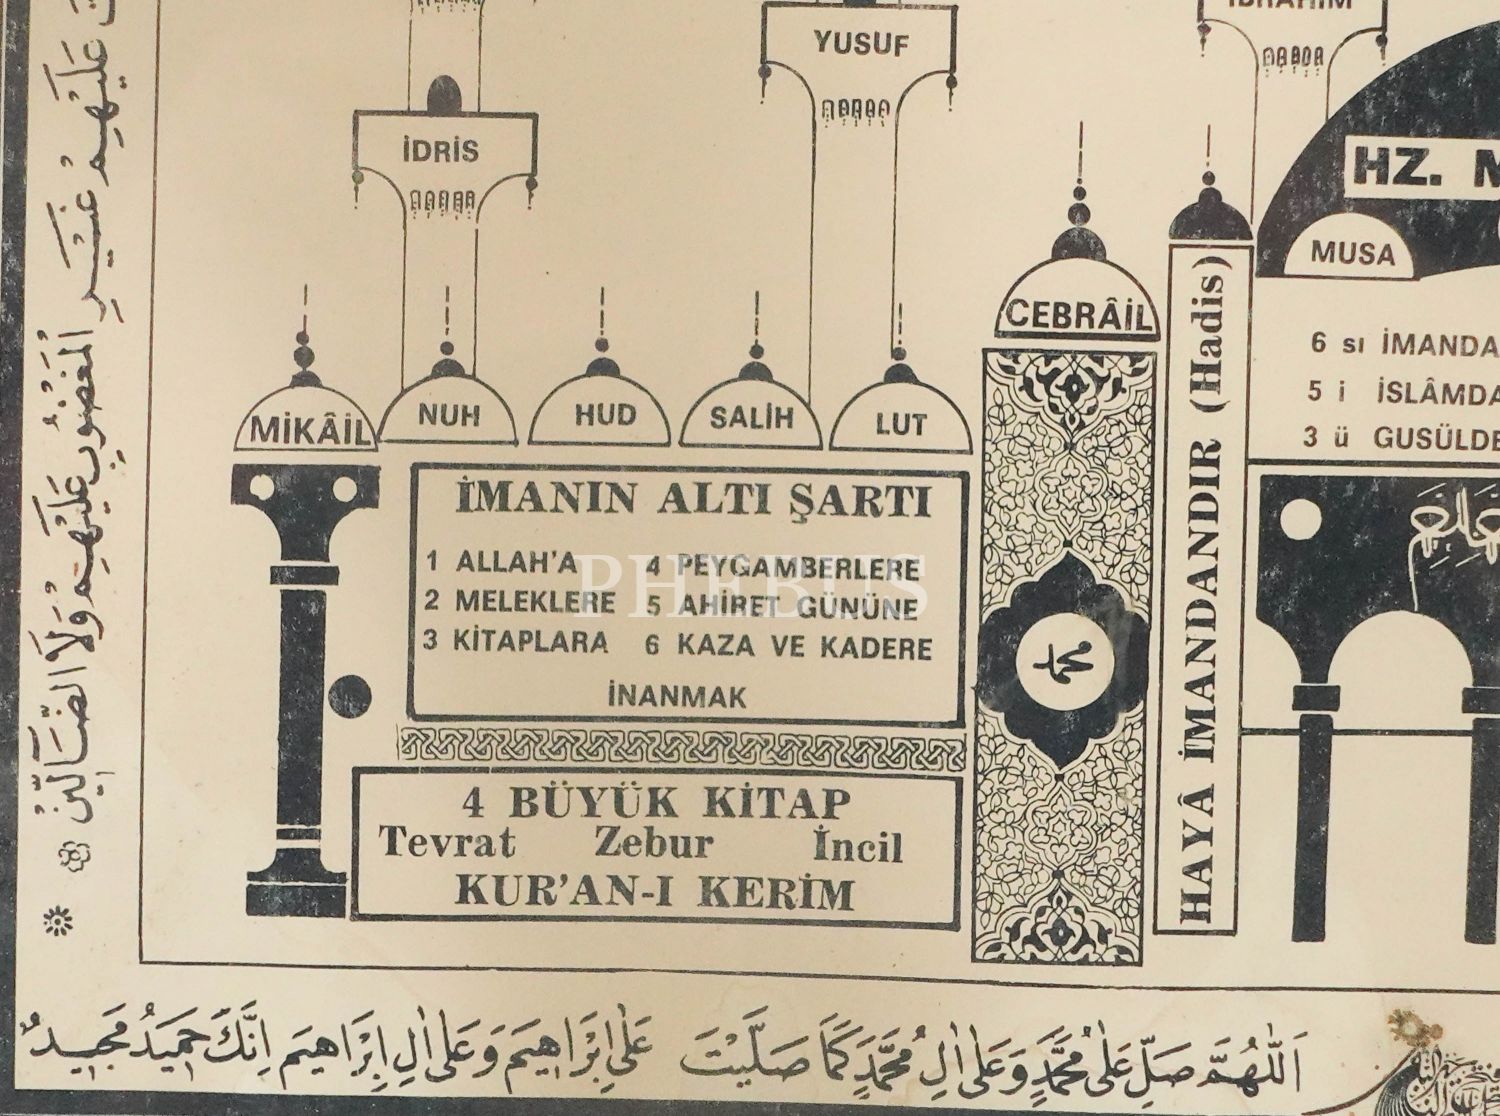 İBRAHİM
YUSUF
İDRİS
HZ. M
MUSA
CEBRÂİL
MİKÂİL
NUH
HUD
SALİH
LUT
HAYÂ İMANDANDIR (Hadis)
6 sı İMANDA
5 i İSLÂMDA
3 ü GUSÜLDE
İMANIN ALTI ŞARTI
1 ALLAH'A 4 PEYGAMBERLERE
2 MELEKLERE 5 AHİRET GÜNÜNE
3 KİTAPLARA 6 KAZA VE KADERE
İNANMAK
PHEBUS
محمد
4 BÜYÜK KİTAP
Tevrat Zebur İncil
KUR'AN-I KERİM
عَلَيْهِمْ غَيْرِ الْمَغْضُوبِ عَلَيْهِمْ وَلَا الضَّالِّينَ
اَللّٰهُمَّ صَلِّ عَلٰى مُحَمَّدٍ وَعَلٰى اٰلِ مُحَمَّدٍ كَمَا صَلَّيْتَ عَلٰى اِبْرَاهِيمَ وَعَلٰى اٰلِ اِبْرَاهِيمَ اِنَّكَ حَمِيدٌ مَجِيدٌ